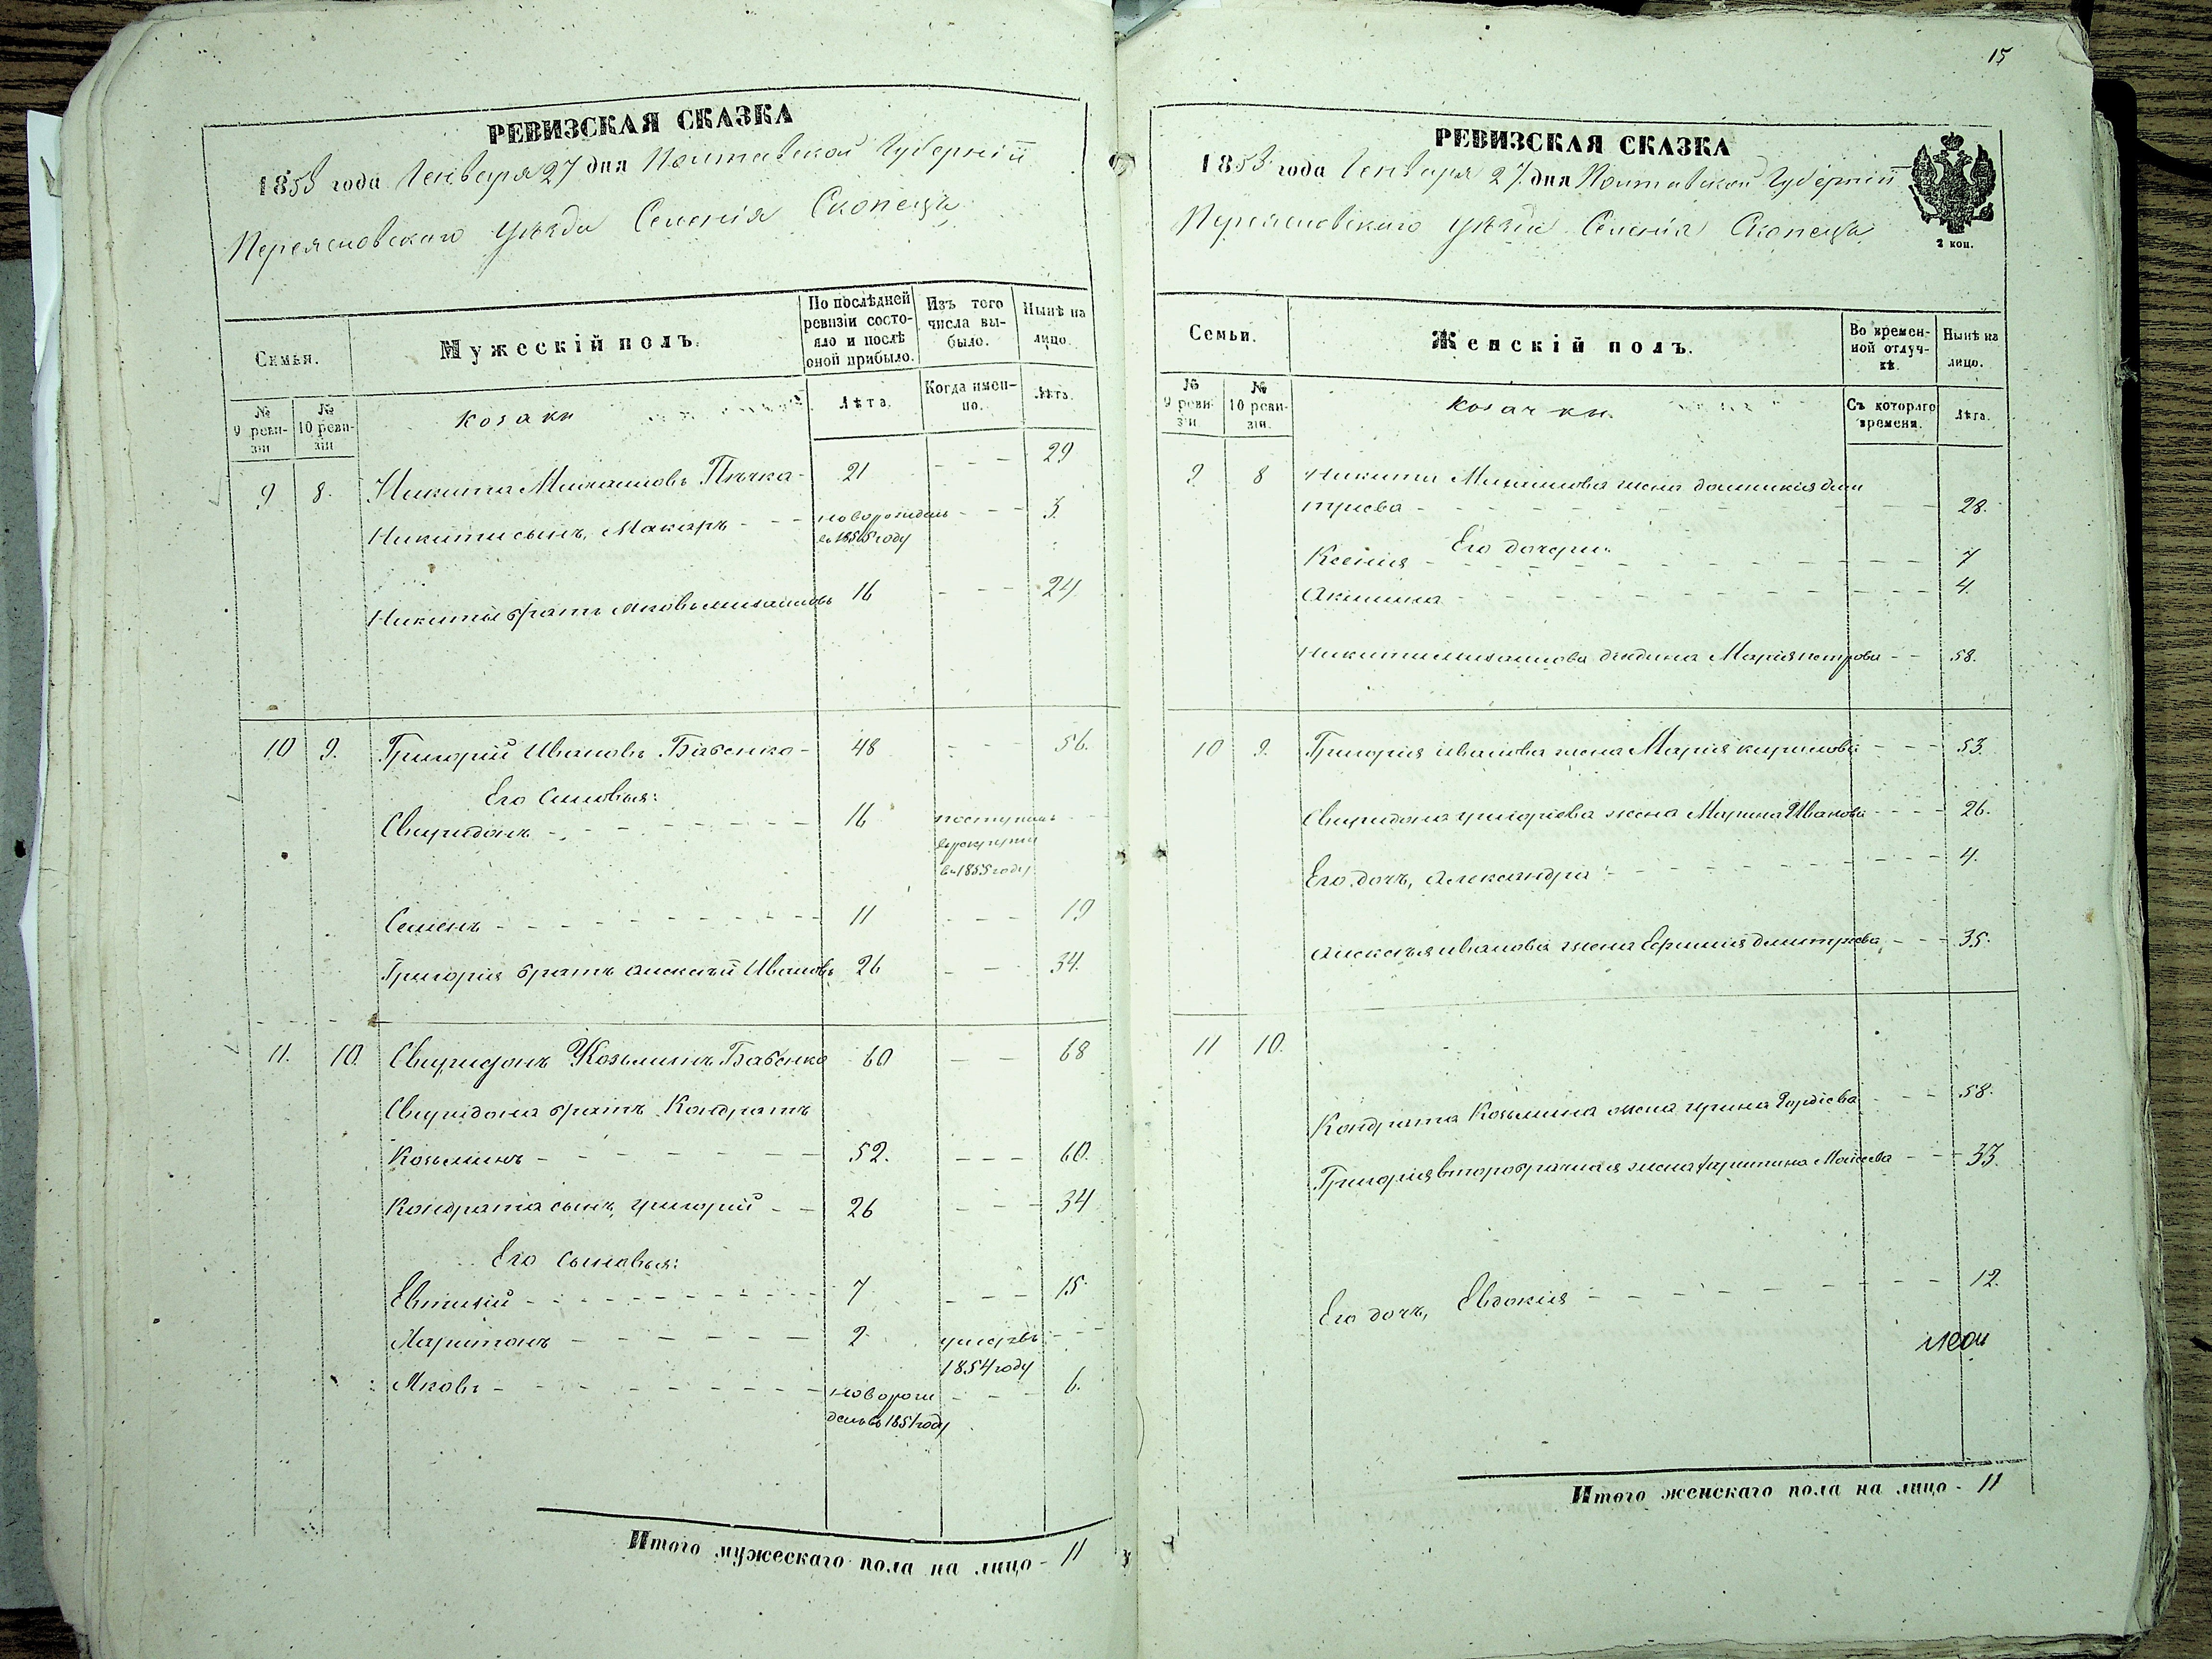 РЕВИЗСКАЯ СКАЗКА
1858 года Генваря 27 дня Полтавской Губерніи
Переясловскаго уѣзда Селенія Скопецъ
Семья.
Мужескій полъ.
По послѣдней ревизіи состояло и послѣ оной прибыло.
Изъ того числа выбыло.
Нынѣ на лицо.
№ 9 ревизіи
№ 10 ревизіи
козаки
Лѣта.
Когда именно.
Лѣта.
9 8. Никита Михаиловъ Пѣчка - 21 - - - 29
Никиты сынъ, Макаръ - - новорожденъ - - - 3.
въ 1855 году
Никиты братъ Яковъ михаиловъ 16 - - - 24.
10 9. Григорій Ивановъ Бабенко - 48 - - - 56.
Его Сыновья:
Свиридонъ - - - - - - - 16 поступилъ - -
въ рекруты
въ 1855 году
Семенъ - - - - - - - - - 11 - - - 19
Григорія братъ Алексѣй Ивановъ 26 - - 34.
11. 10. Свиридонъ Козьминъ Бабенко 60 - - 68
Свиридона братъ Кондратъ
Козьминъ - - - - - - - 52. - - - 60.
Кондрата сынъ, григорій - - 26 - - - 34
Его сыновья:
Евтихій - - - - - - - - - 7 - - - 15
Харитонъ - - - - - - 2 умеръ - - -
1854 году
Яковъ - - - - - - - - новорож - - - 6.
денъ въ 1851 году
Итого мужескаго пола на лицо - 11
15
РЕВИЗСКАЯ СКАЗКА
1858 года Генваря 27 дня Полтавской Губерніи
Переясловскаго уѣзда Селенія Скопецъ
2 коп.
Семьи.
Женскій полъ.
Во временной отлучкѣ.
Нынѣ на лицо.
№ 9 ревизіи
№ 10 ревизіи.
козачки
Съ котораго времени.
Лѣта.
9 8 Никиты Михаилова жена домникия дми
триева - - - - - - - - - 28.
Его дочери:
Ксения - - - - - - - - - 7
Акилина - - - - - - - - - 4.
Никиты михаилова дядина Мария петрова - - 58.
10 9. Григория иванова жена Мария кирилова - - - 53.
Свиридона григориева жена Марина Иванова - - - 26.
Его дочь, александра - - - - - - - 4.
алексѣя иванова жена Ефимия дмитриева - - - 35.
11 10.
Кондрата Козьмина жена ирина Гордіева - - - 58.
Григория второбрачная жена христина Моисеева - - - 33.
Его дочь, Евдокия - - - - - - - 12.
Итого женскаго пола на лицо - 11